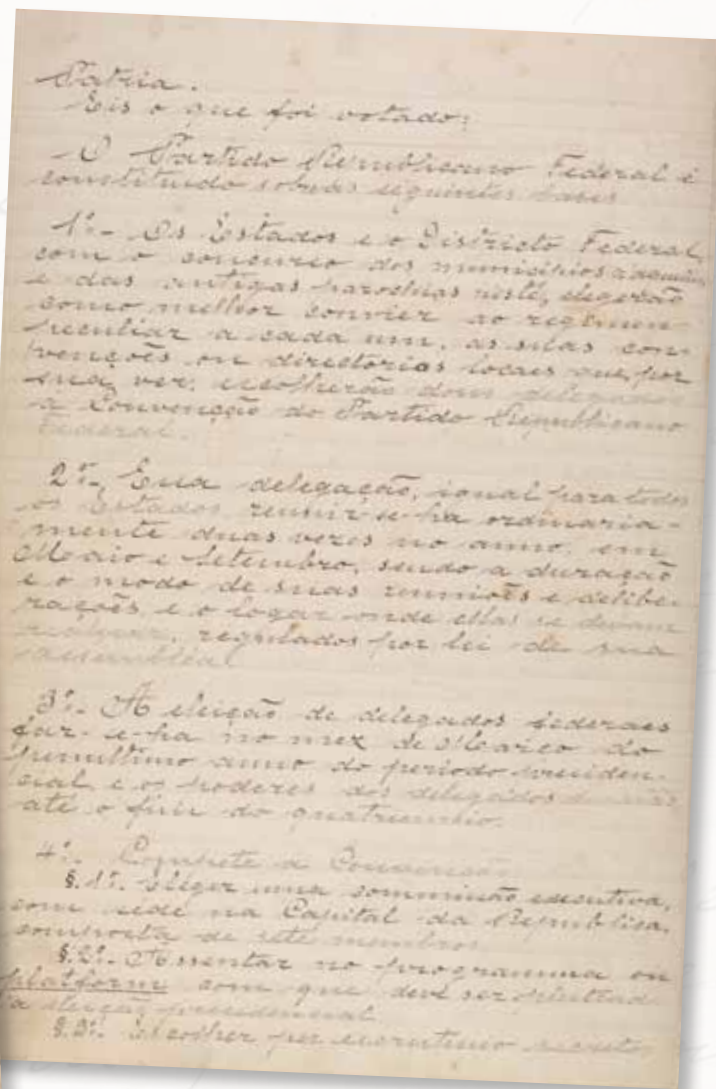 Patria.
Eis o que foi votado:
O Partido Republicano Federal é
constituido sob as seguintes bases
1º.- Os Estados e o Districto Federal,
com o concurso dos municipios
e das antigas parochias neste, elegerão
como melhor convier ao regimen
peculiar a cada um, as suas con-
venções ou directorios locaes que, por
sua vez, escolherão delegados
a Convenção do Partido Republicano
Federal.
2º.- Essa delegação, igual para todos
os Estados reunir-se-ha ordinaria-
mente duas vezes no anno, em
Maio e Setembro, sendo a duração
e o modo de suas reuniões e delibe-
rações e o logar onde ellas se devam
realizar, regulados por lei de sua
assembléa
3º.- A eleição de delegados federaes
far-se-ha no mez de Março do
penultimo anno do periodo presiden-
cial, e os poderes dos delegados
até o fim do quatriennio.
4º. Compete a Convenção
§.1º. Eleger uma commissão executiva,
com séde na Capital da Republica,
composta de sete membros
§.2º. Assentar no programma ou
platform com que deve ser pleiteada
a eleição presidencial
§.3º. Escolher por escrutinio secreto